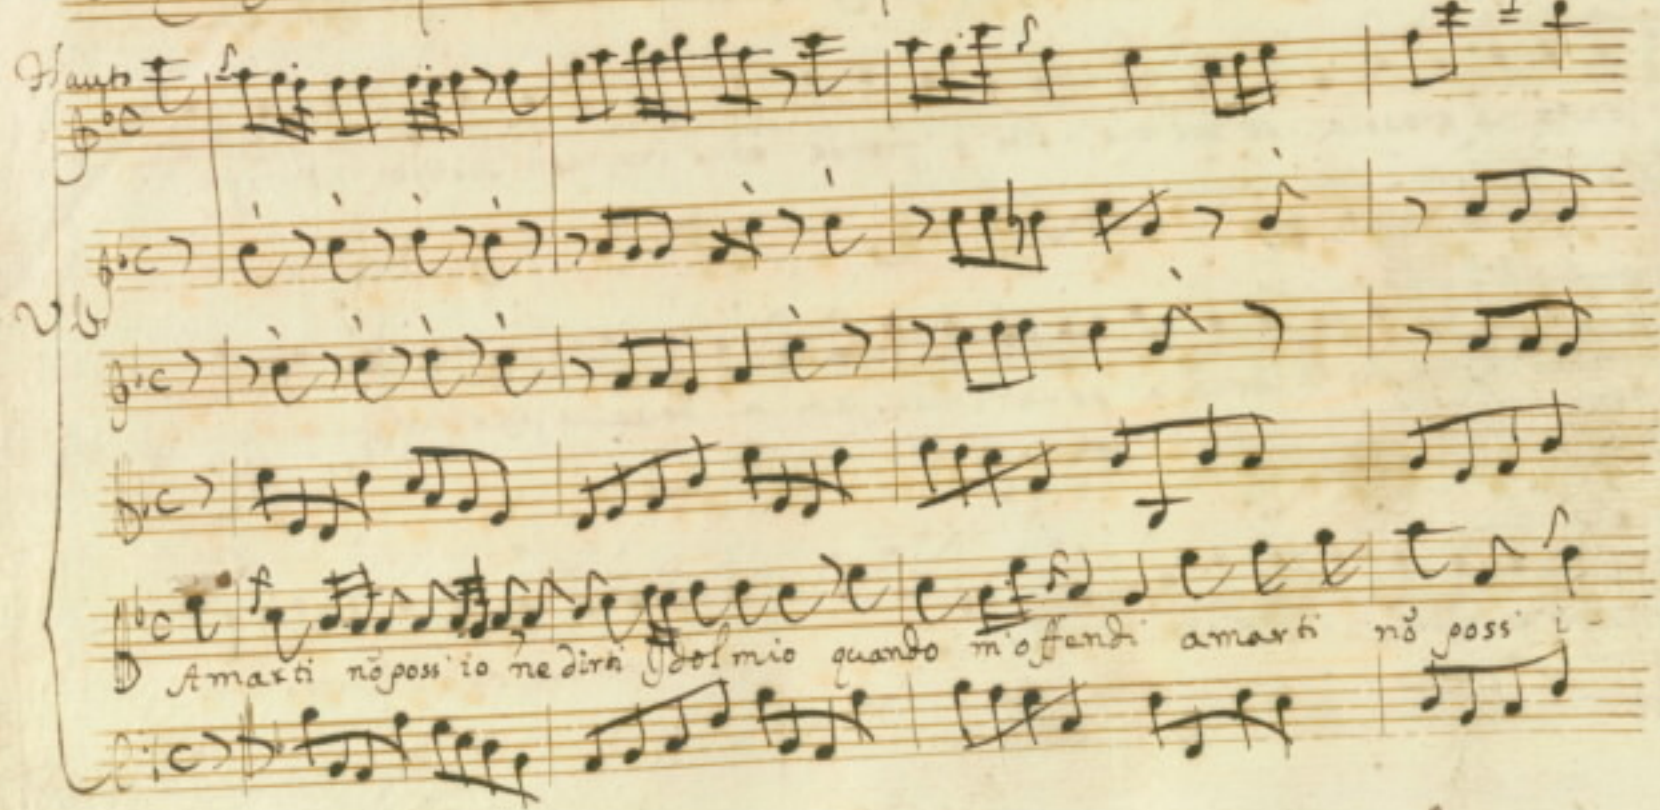 Flauto
VV
Amarti nõ poss' io ne dirti Ydol mio quando m'offendi amarti nõ poss' i-